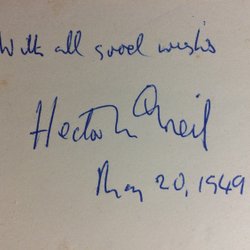 With all good wishes
Hector McNeil
May 20, 1949